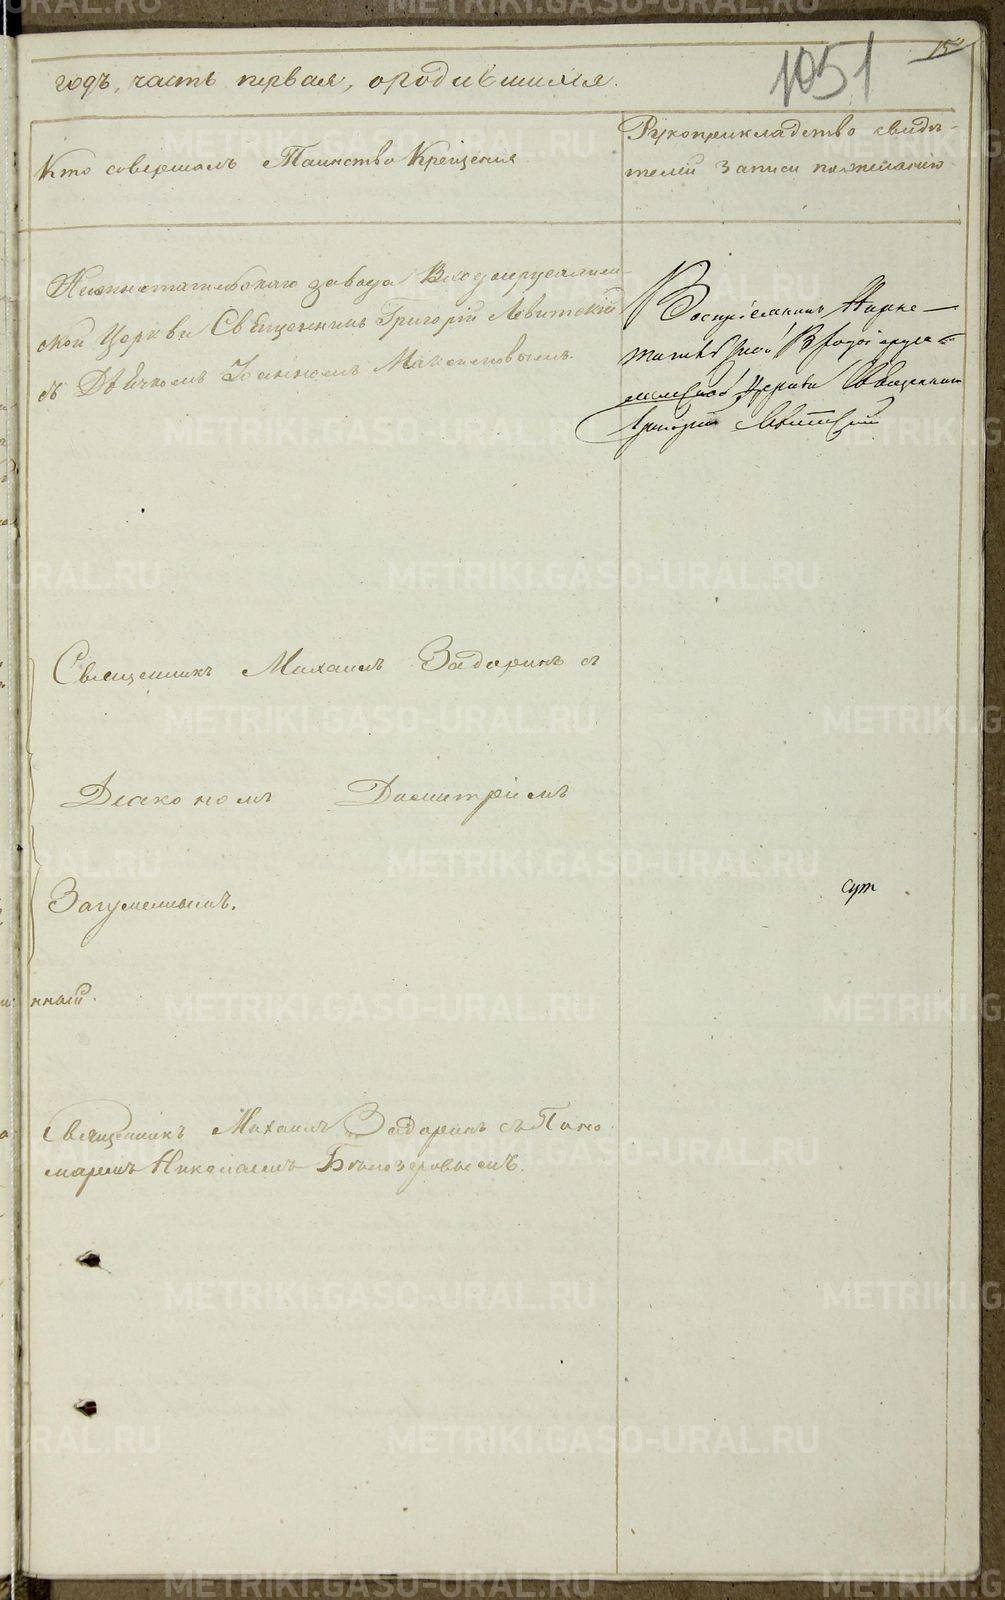 1051
15
годъ, часть первая, о родившихся.
Кто совершалъ Таинство Крещенія
Рукоприкладство свидѣ-
телей записи по желанію
Нижнетагильскаго завода Входоіерусалим
ской Церкви Священникъ Григорій Левитскій
съ Дьячкомъ Іоанномъ Максимовымъ.
Воспріемникъ Нижне-
тагильской Входоіеруса-
лимской Церкви Священникъ
Григорій Левитскій
Священникъ Михаилъ Задоринъ съ
Діакономъ Димитріемъ
Загуменнымъ.
сут
нный.
Священникъ Михаилъ Задоринъ съ Поно
маремъ Николаемъ Бѣлозеровымъ.
METRIKI.GASO-URAL.RU